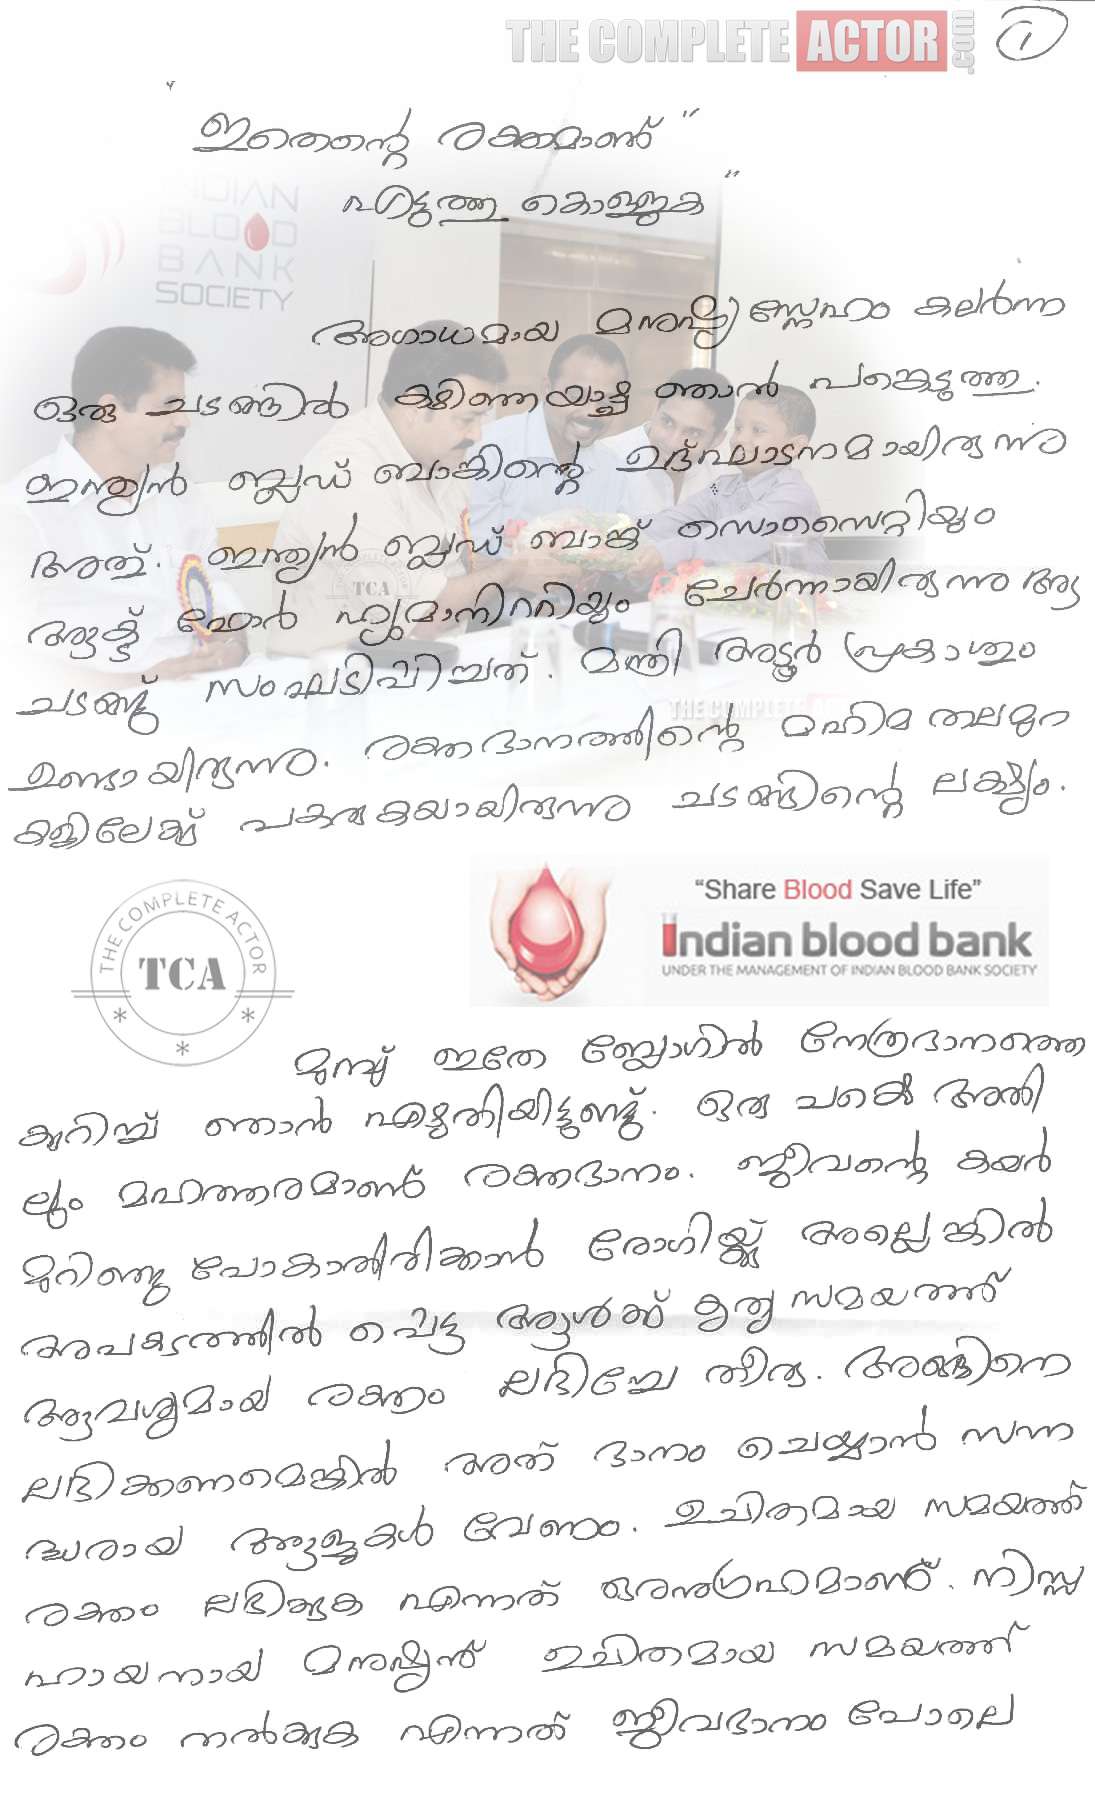 THE COMPLETE ACTOR.com
1
"ഇതെന്റെ രക്തമാണ്"
എടുത്തു കൊള്ളുക"
INDIAN
BLOOD
BANK
SOCIETY
അഗാധമായ മനുഷ്യസ്നേഹം കലർന്ന
ഒരു ചടങ്ങിൽ കഴിഞ്ഞയാഴ്ച ഞാൻ പങ്കെടുത്തു.
ഇന്ത്യൻ ബ്ലഡ് ബാങ്കിന്റെ ഉദ്ഘാടനമായിരുന്നു
അത്. ഇന്ത്യൻ ബ്ലഡ് ബാങ്ക് സൊസൈറ്റിയും
ആക്ട് ഫോർ ഹ്യുമാനിററിയും ചേർന്നായിരുന്നു ആ
ചടങ്ങ് സംഘടിപ്പിച്ചത്. മന്ത്രി അടൂർ പ്രകാശും
ഉണ്ടായിരുന്നു. രക്തദാനത്തിന്റെ മഹിമ തലമുറ
കളിലേക്ക് പകരുകയായിരുന്നു ചടങ്ങിന്റെ ലക്ഷ്യം.
THE COMPLETE ACTOR
TCA
"Share Blood Save Life"
indian blood bank
UNDER THE MANAGEMENT OF INDIAN BLOOD BANK SOCIETY
മുമ്പ് ഇതേ ബ്ലോഗിൽ നേത്രദാനത്തെ
കുറിച്ച് ഞാൻ എഴുതിയിട്ടുണ്ട്. ഒരു പക്ഷെ അതി
ലും മഹത്തരമാണ് രക്തദാനം. ജീവന്റെ കയർ
മുറിഞ്ഞു പോകാതിരിക്കാൻ രോഗിയ്ക്ക് അല്ലെങ്കിൽ
അപകടത്തിൽ പെട്ട ആൾക്ക് കൃത്യ സമയത്ത്
ആവശ്യമായ രക്തം ലഭിച്ചേ തീരൂ. അങ്ങിനെ
ലഭിക്കണമെങ്കിൽ അത് ദാനം ചെയ്യാൻ സന്ന
ദ്ധരായ ആളുകൾ വേണം. ഉചിതമായ സമയത്ത്
രക്തം ലഭിക്കുക എന്നത് ഒരനുഗ്രഹമാണ്. നിസ്സ
ഹായനായ മനുഷ്യന് ഉചിതമായ സമയത്ത്
രക്തം നൽകുക എന്നത് ജീവദാനം പോലെ